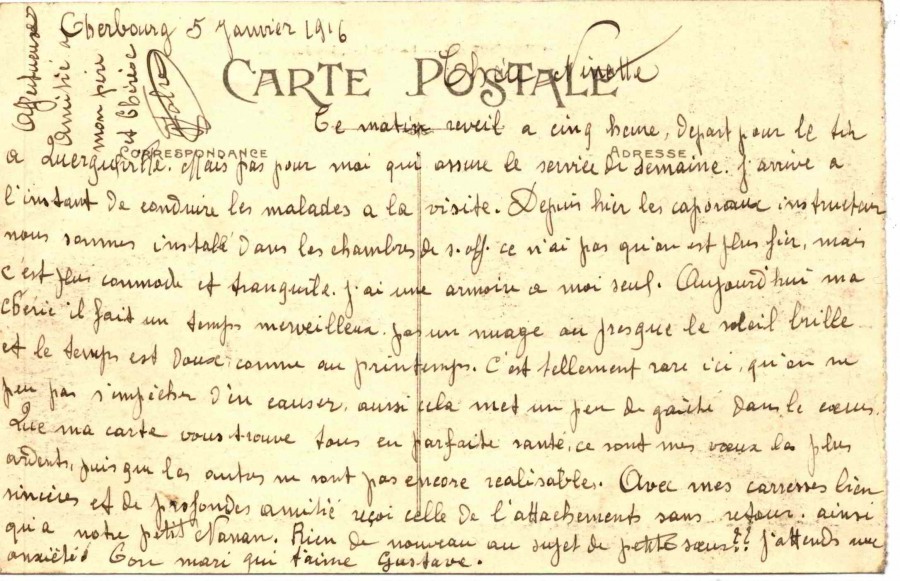 Cherbourg 5 Janvier 1916
CARTE POSTALE
Chère Ninette
Ce matin reveil a cinq heure, depart pour le tir
CORRESPONDANCE
ADRESSE
a Querqueville. Mais pas pour moi qui assure le service de semaine. J'arrive a
l'instant de conduire les malades a la visite. Depuis hier les caporaux instructeur
nous sommes installé dans les chambres de s. off. ce n'ai pas qu'on est plus fier, mais
c'est plus commode et tranquile. J'ai une armoire a moi seul. Aujourd'hui ma
cherie il fait un temps merveilleux. pas un nuage ou presque le soleil brille
et le temps est doux comme au printemps. C'est tellement rare ici, qu'on ne
peu pas s'empêcher d'en causer, aussi cela met un peu de gaité dans le cœur.
Que ma carte vous trouve tous en parfaite santé, ce sont mes vœux les plus
ardents, puisque les autres ne sont pas encore realisables. Avec mes carresses bien
sincères et de profondes amitié reçoi celle de l'attachements sans retour. ainsi
qu'a notre petit Nanan. Rien de nouveau au sujet de petite sœur?? J'attends avec
anxiétés Ton mari qui t'aime Gustave.
Affectueuse
Amitié a
mon père
et Thérèse